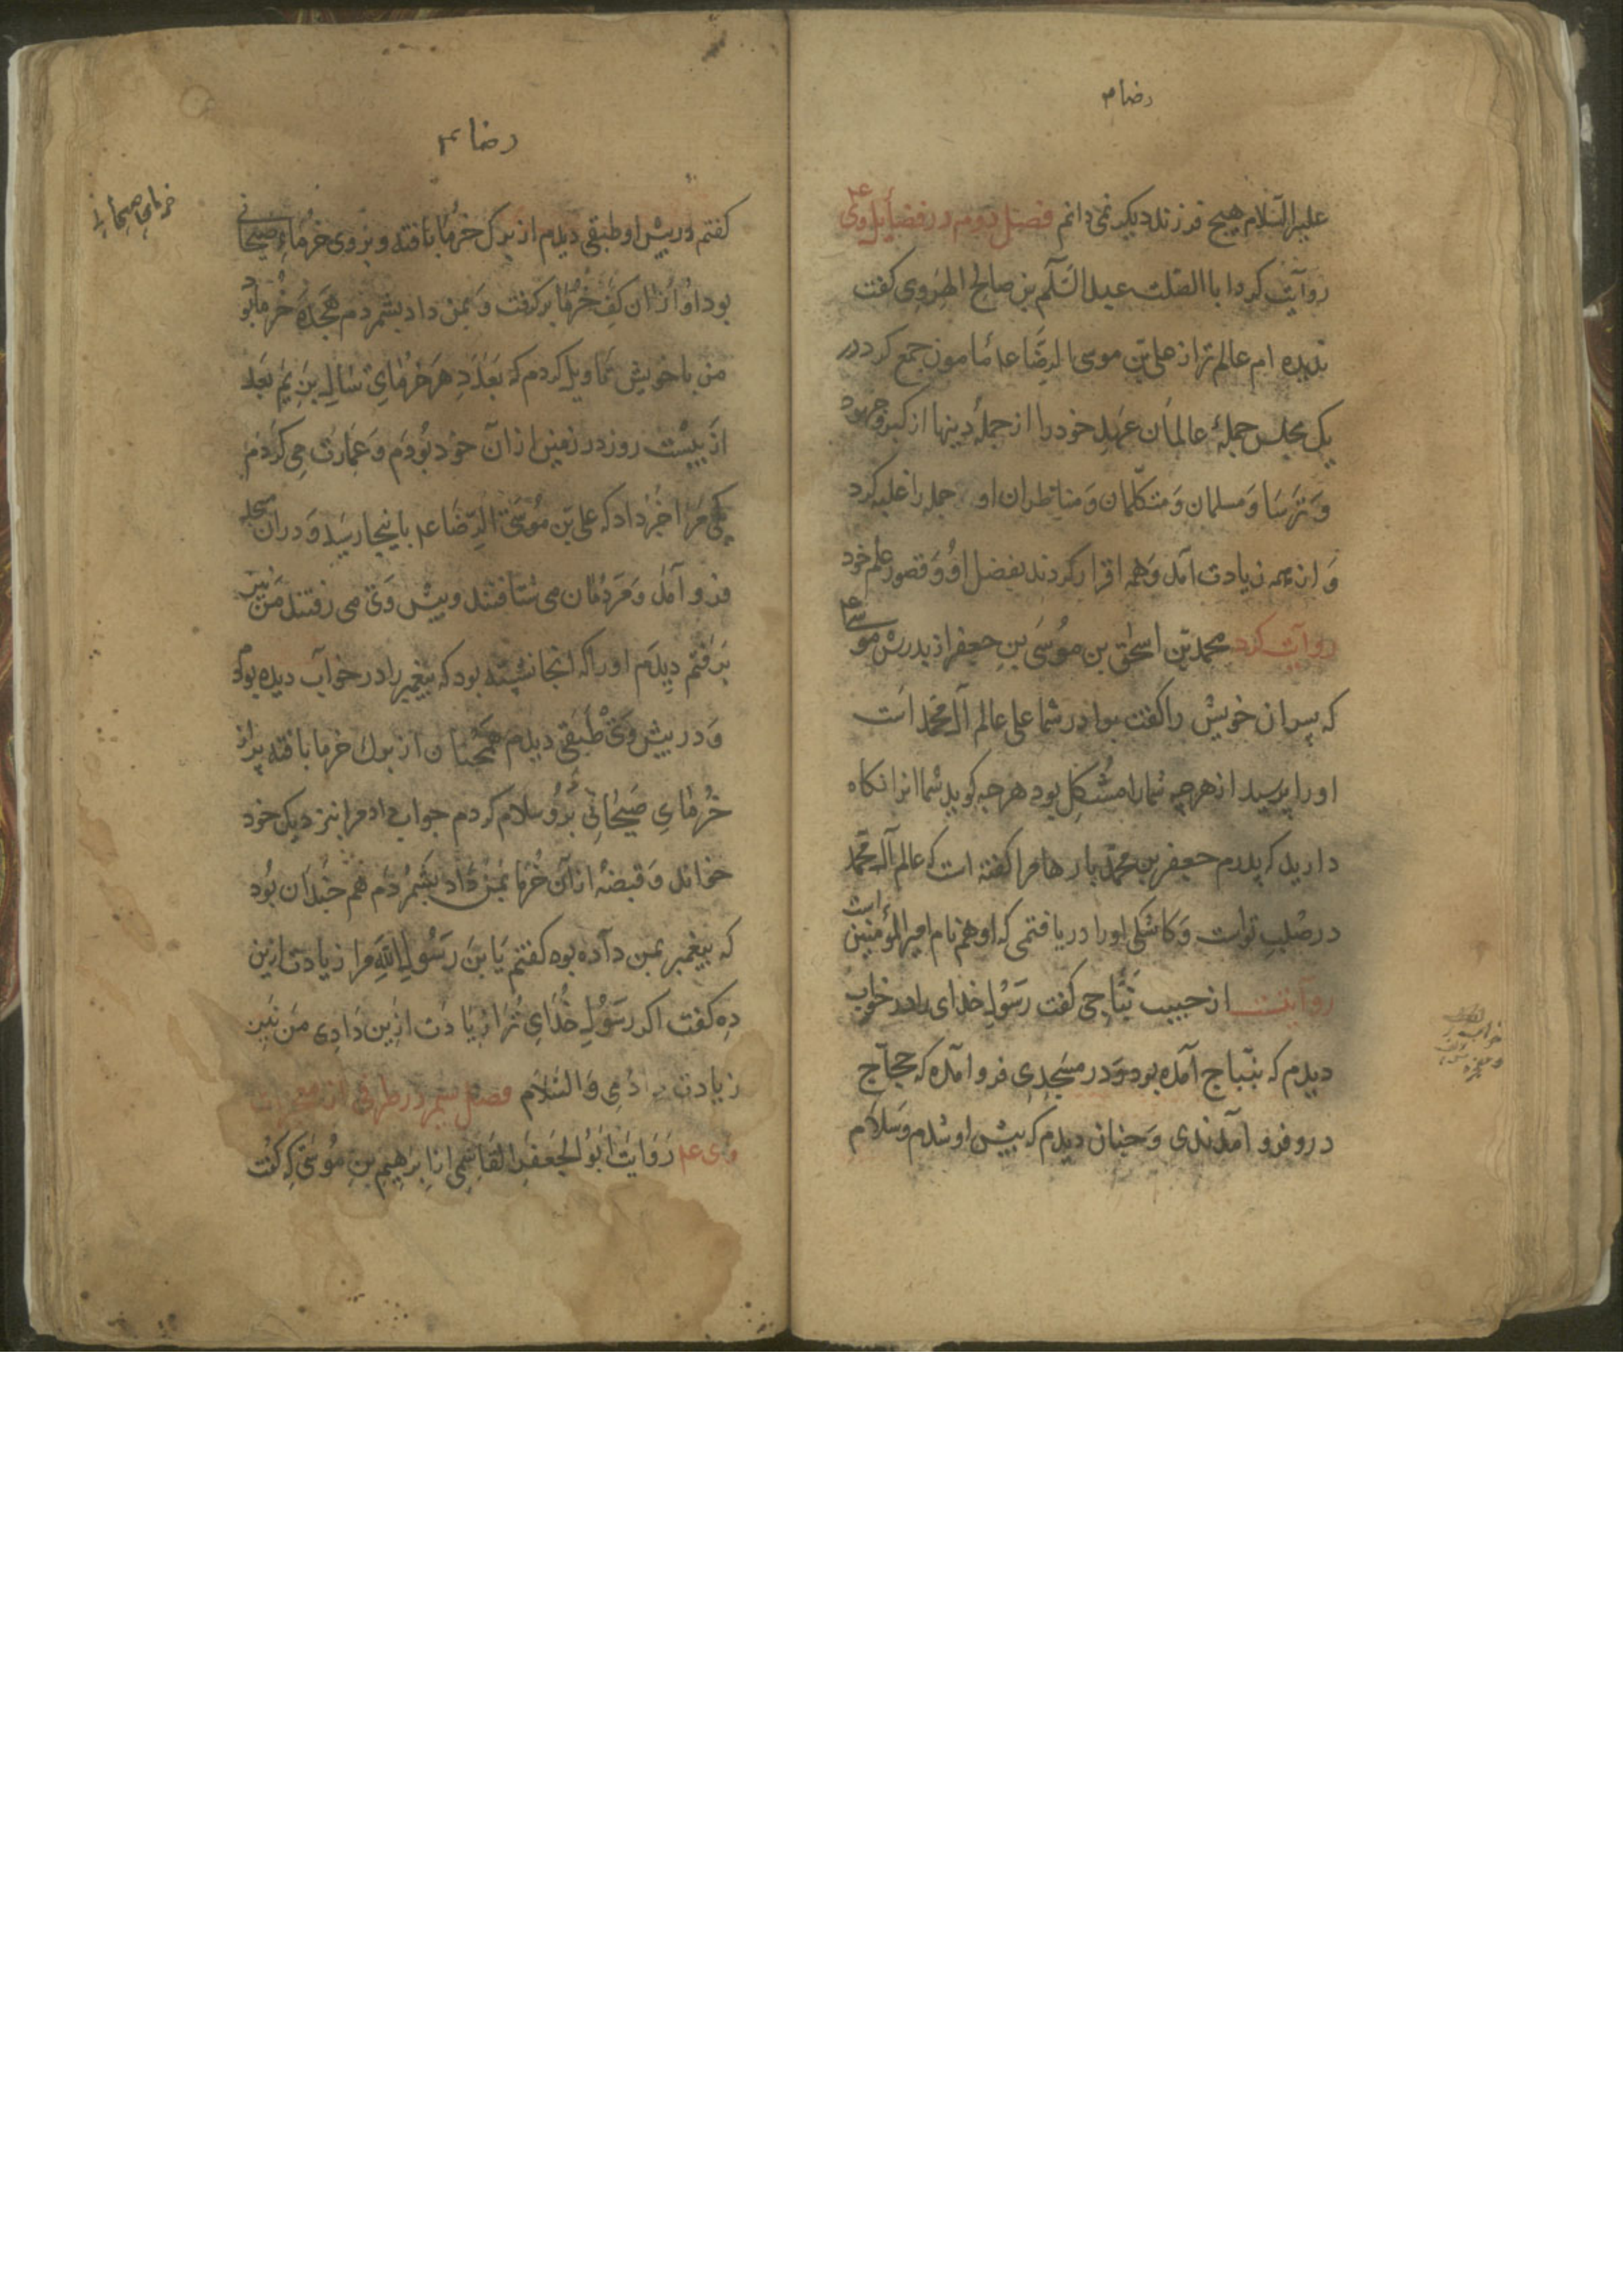 رضا ۴
علیه السّلام هیچ فرزند دیکر نمی دانم فصل دوم در فضایل وی ع
روآیت کرد ابا الصّلت عبد السّلم بن صالح الهروی کفت
ندیده ام عالم تر از علی بن موسی الرّضا عد مامون جمع کرد در
یک مجلس جملهٔ عالمان عهد خود را از جملهٔ دینها از کبر و جهود
و ترسا و مسلمان و متکلّمان و مناظران او جمله را غلبه کرد
و از همه زیادت آمد و همه اقرار کردند بفضل او و قصور علم خود
روآیت کرد محمد بن اسحق بن موسی بن جعفر از پدرش موسی ع
که پسران خویش را کفت برادر شما علی عالم آل محمد است
او را پرسید از هرچه شما را مشکل بود هرچه کوید شما آنرا نکاه
دارید که پدرم جعفر بن محمّد بارها مرا کفته است که عالم آل محمّد
در صلب توست و کاشکی او را دریافتمی که او همنام امیر المؤمنین است
روایتست از حبیب نبّاجی کفت رسول خدای را در خواب
دیدم که بنباج آمده بود و در مسجدی فرو آمده که حجّاج
درو فرو آمدندی و چنان دیدم که پیش او شدم و سلام
خواب
و معجزه
رضا ۴
کفتم در پیش او طبقی دیدم از برک خرما بافته و بر وی خرماء صیحانی
بود او از آن کف خرما برکرفت و بمن داد بشمردم هجده خرما بود
من با خویش تاویل کردم که بعدد هر خرمای سالی بزیم بعد
از بیست روز در زمین از آن خود بودم و عمارت می کردم
یکی مرا خبر داد که علی بن موسی الرّضا عد باینجا رسید و در آن مسجد
فرو آمد و مردمان می شتافتند و پیش وی می رفتند من نیز
برفتم دیدم او را که آنجا نشسته بود که پیغمبر را در خواب دیده بودم
و در پیش وی طبقی دیدم همچنان از برک خرما بافته پر از
خرمای صیحانی برو سلام کردم جواب داد مرا بنزدیک خود
خواند و قبضهٔ از آن خرما بمن داد بشمردم هم چندان بود
که پیغمبر بمن داده بود کفتم یا بن رسول الله مرا زیادت ازین
ده کفت اکر رسول خدای ترا زیادت ازین دادی من نیز
زیادت دادمی والسّلام فصل سیم در طرفی از معجزات
وی عد روایت ابو الجعفر القاسمی از ابرهیم بن موسی که کفت
خرمای صیحانی